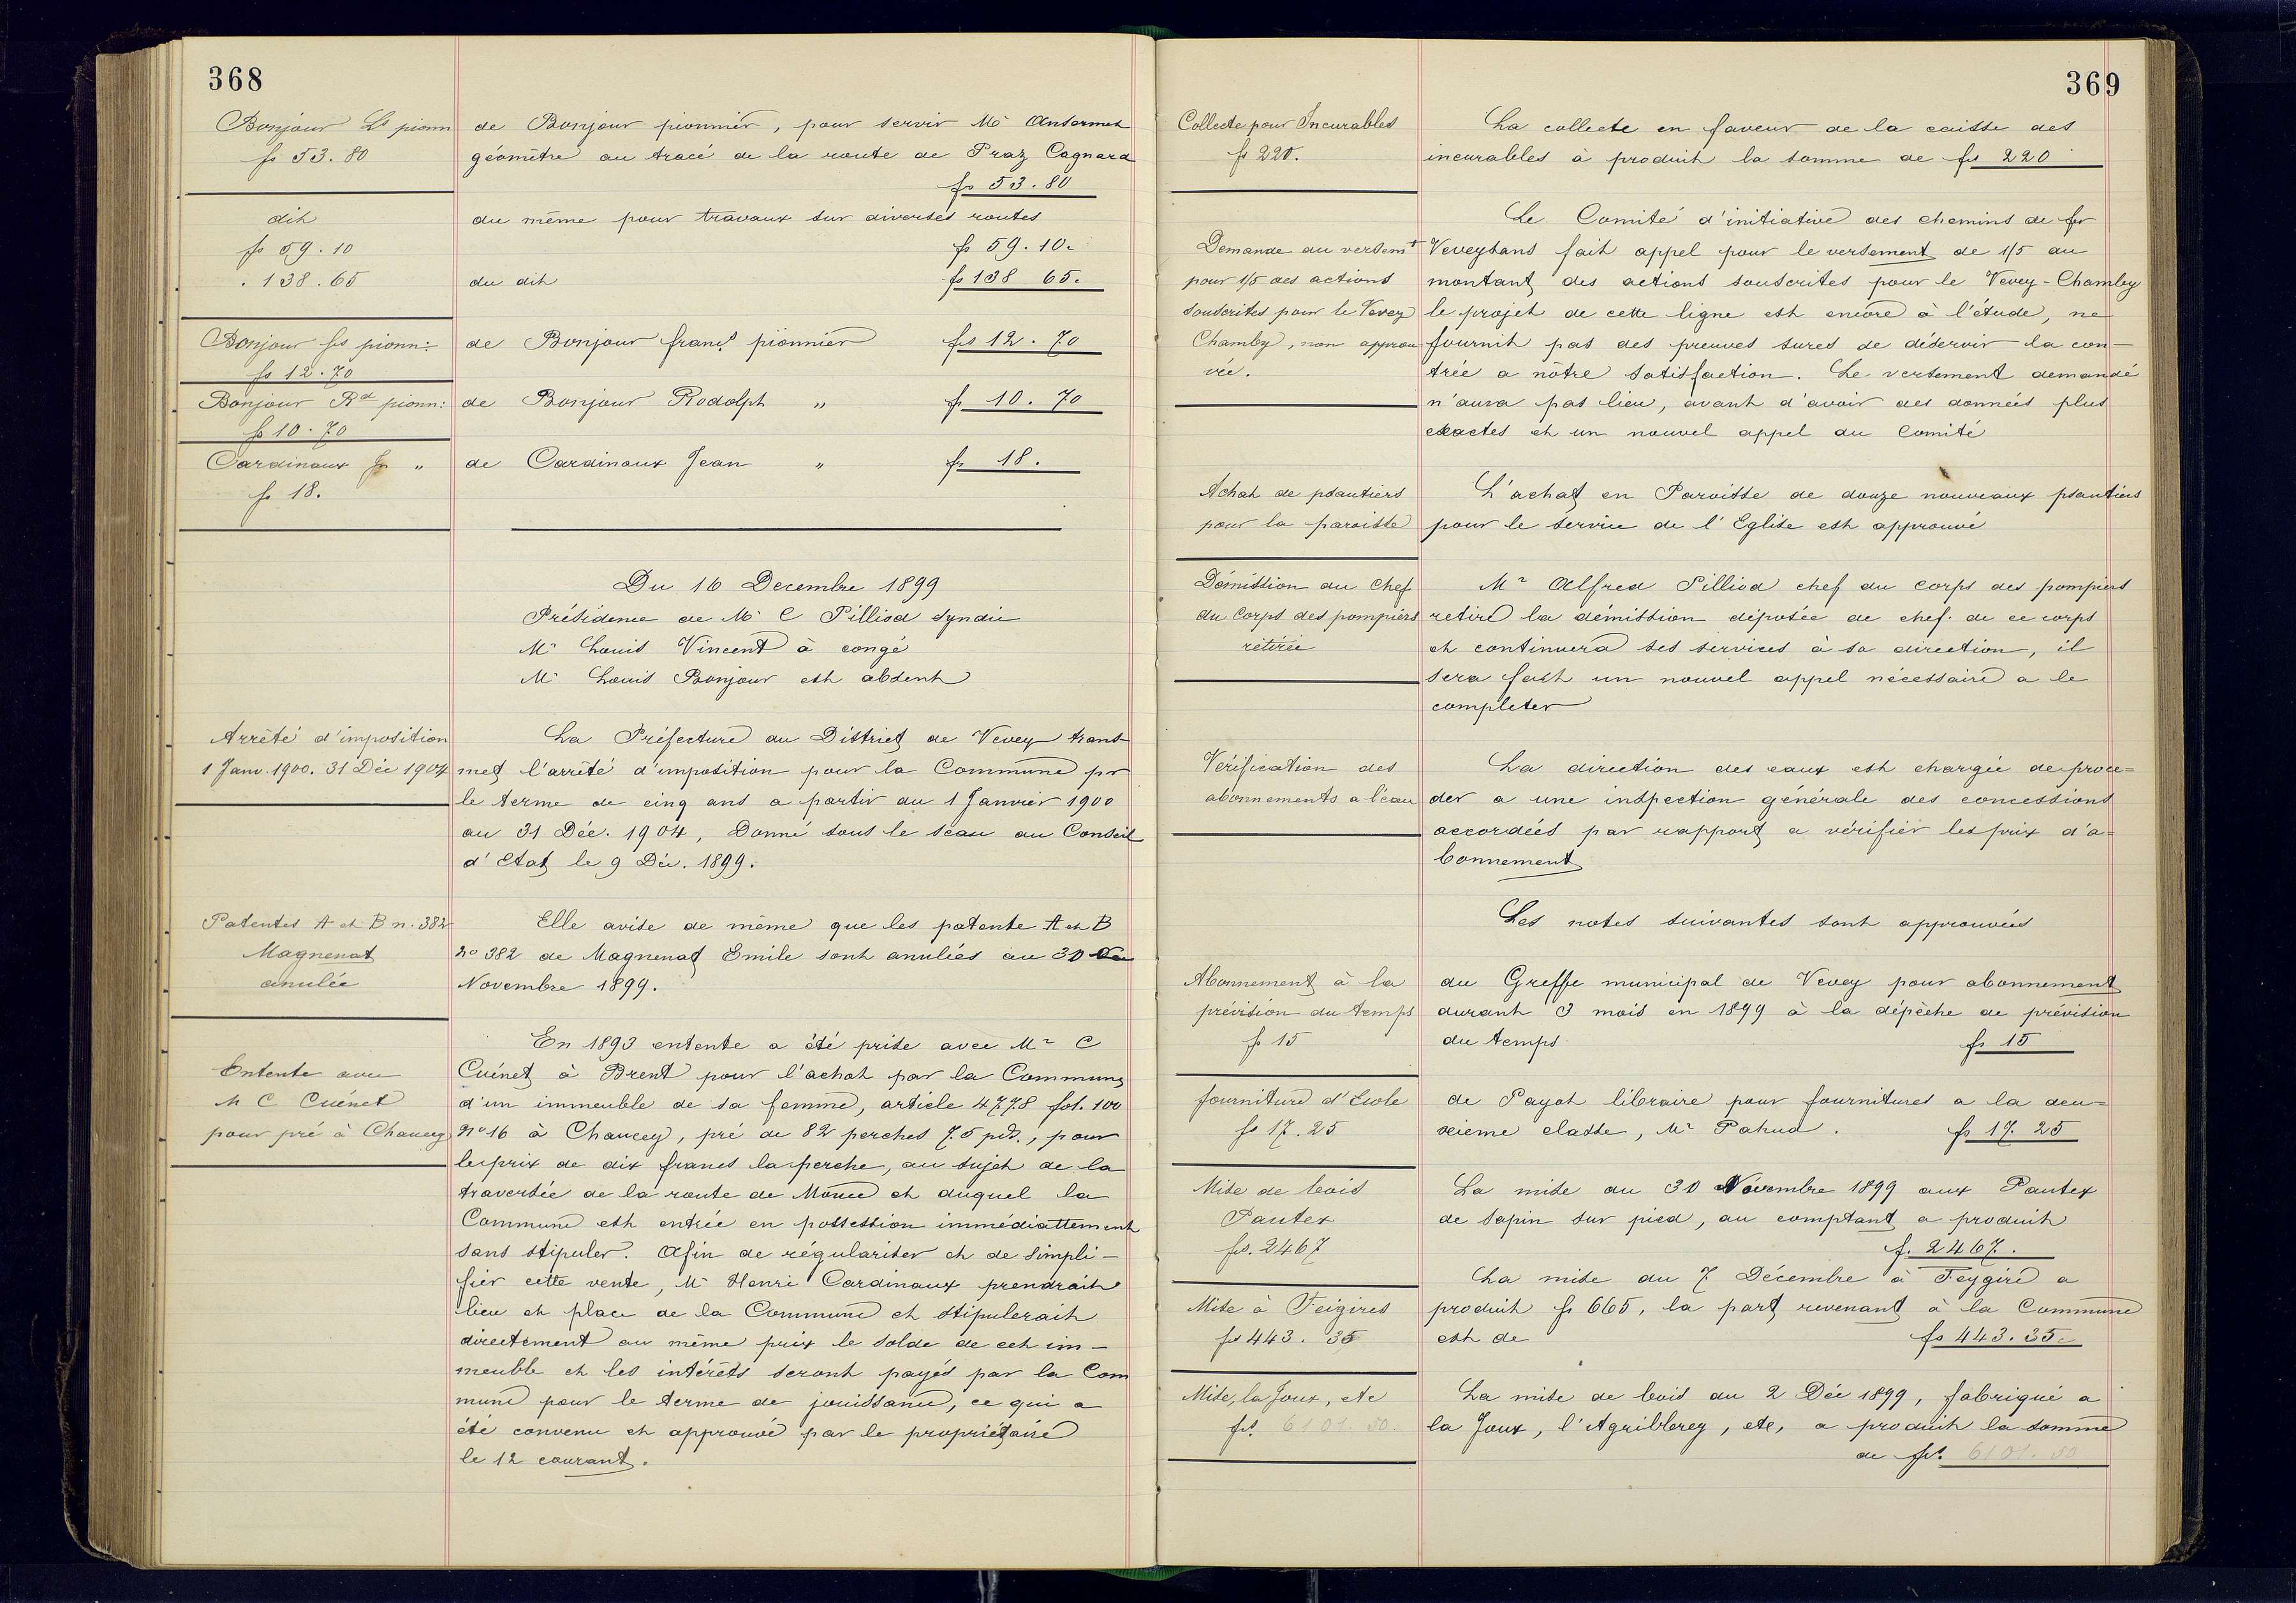 368
Bonjour Ls pionn
fs 53.80
de Bonjour pionnier, pour servir Mr Ansermet
géomètre au tracé de la route de Praz Cagnard
fs 53.80
dit
fs 59.10
. 138.65
du même pour travaux sur diverses routes
fs 59.10.
du dit fs 138 65.
Bonjour fs pionn:
fs 12.70
de Bonjour franç. pionnier frs 12.70
Bonjour Rd pionn:
fs 10.70
de Bonjour Rodolph " fr 10.70
Cardinaux Jn "
fs 18.
de Cardinaux Jean " fr 18.
Du 16 Decembre 1899
Présidence de Mr C Pilliod syndic
Mr Louis Vincent à congé
Mr Louis Bonjour est absent
Arrêté d'imposition
1 Janv. 1900. 31 Déc 1904
La Préfecture du District de Vevey trans-
met l'arrêté d'imposition pour la Commune pr
le terme de cinq ans a partir du 1 Janvier 1900
au 31 Déc. 1904, Donné sous le sceau du Conseil
d'Etat le 9 Déc. 1899.
Patentes A et B n. 382
Magnenat
anulée
Elle avise de même que les patente A et B
no 382 de Magnenat Emile sont anulées au 30
Novembre 1899.
Entente avec
M C Cuénet
pour pré à Chaucey
En 1893 entente a été prise avec Mr C
Cuénet à Brent pour l'achat par la Commune
d'un immeuble de sa femme, article 4778 fol. 100
No 16 à Chaucey, pré de 82 perches 75 pds., pour
le prix de dix francs la perche, au sujet de la
traversée de la route de Mouce et duquel la
Commune est entrée en possession immédiattement
sans stipuler. Afin de régulariser et de simpli-
fier cette vente, Mr Henri Cardinaux prendrait
lieu et place de la Commune et stipulerait
directement au même prix le solde de cet im-
meuble et les intérêts seront payés par la Com
mune pour le terme de jouissance, ce qui a
été convenu et approuvé par le propriétaire
le 12 courant.
369
Collecte pour Incurables
fs 220.
La collecte en faveur de la caisse des
incurables à produit la somme de frs 220
Demande du versemt
pour 1/5 des actions
souscrites pour le Vevey
Chamby, non approu
vée.
Le Comité d'initiative des chemins de fer
Veveysans fait appel pour le versement de 1/5 du
montant des actions souscrites pour le Vevey-Chamby
le projet de cette ligne est encore à l'étude, ne
fournit pas des preuves sures de déservir la con-
trée a nôtre satisfaction. Le versement demandé
n'aura pas lieu, avant d'avoir des données plus
exactes et un nouvel appel du Comité
Achat de psautiers
pour la paroisse
L'achat en Paroisse de douze nouveaux psautiers
pour le service de l'Eglise est approuvé
Démission du Chef
du Corps des pompiers
retirée
Mr Alfred Pilliod chef du corps des pompiers
retire la démission déposée de chef de ce corps
et continuera ses services à sa direction, il
sera fait un nouvel appel nécessaire a le
completer
Vérification des
abonnements a l'eau
La direction des eaux est chargée de procé=
der a une inspection générale des concessions
accordées par rapport a vérifier les prix d'a=
bonnement
Les notes suivantes sont approuvées
Abonnement à la
prévision du temps
fs 15
du Greffe municipal de Vevey pour abonnement
durant 3 mois en 1899 à la dépêche de prévision
du temps fs 15
fourniture d'Ecole
fs 17.25
de Payot libraire pour fournitures a la deu=
xieme classe, Mr Pahud. fs 17.25
Mise de bois
Pautex
frs. 2467
La mise du 30 Novembre 1899 aux Pautex
de sapin sur pied, au comptant a produit
f. 2467.
Mise à Feigires
frs 443. 35
La mise du 7 Décembre à Feygire a
produit fs 665, la part revenant à la Commune
est de fs 443.35.
Mise, la Joux, etc
frs. 6101.50.
La mise de bois du 2 Déc 1899, fabriqué a
la Joux, l'Agribberey, etc, a produit la somme
de frs. 6101.50